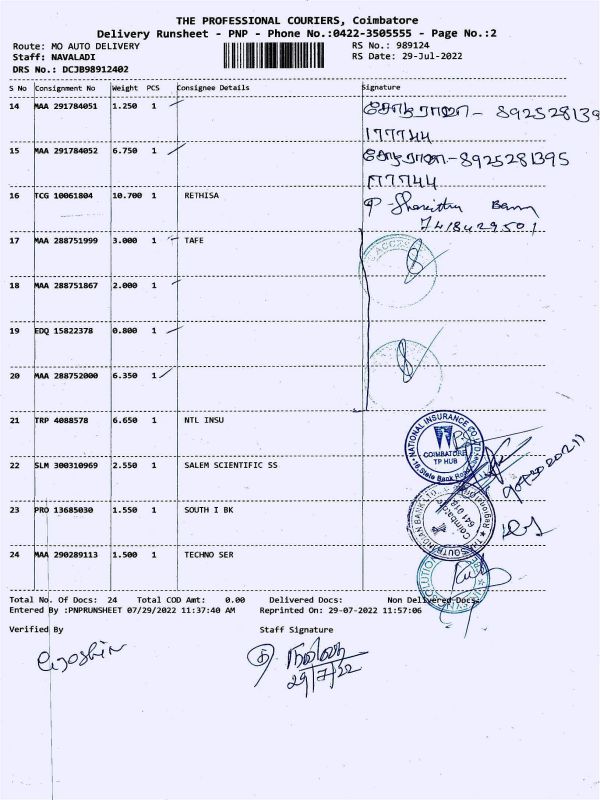 THE PROFESSIONAL COURIERS, Coimbatore
Delivery Runsheet - PNP - Phone No.:0422-3505555 - Page No.:2
Route: MO AUTO DELIVERY
RS No.: 989124
Staff: NAVALADI
RS Date: 29-Jul-2022
DRS No.: DCJB98912402
S No Consignment No Weight PCS Consignee Details Signature
14 MAA 291784051 1.250 1
892528139
177744
15 MAA 291784052 6.750 1
8925281395
177744
16 TCG 10061804 10.700 1 RETHISA
7418429501
17 MAA 288751999 3.000 1 TAFE
18 MAA 288751867 2.000 1
19 EDQ 15822378 0.800 1
20 MAA 288752000 6.350 1
21 TRP 4088578 6.650 1 NTL INSU
NATIONAL INSURANCE CO
COIMBATORE
TP HUB
State Bank Road
22 SLM 300310969 2.550 1 SALEM SCIENTIFIC SS
23 PRO 13685030 1.550 1 SOUTH I BK
24 MAA 290289113 1.500 1 TECHNO SER
Total No. Of Docs: 24 Total COD Amt: 0.00 Delivered Docs: Non Delivered Docs:
Entered By :PNPRUNSHEET 07/29/2022 11:37:40 AM Reprinted On: 29-07-2022 11:57:06
Verified By Staff Signature
29/7/22